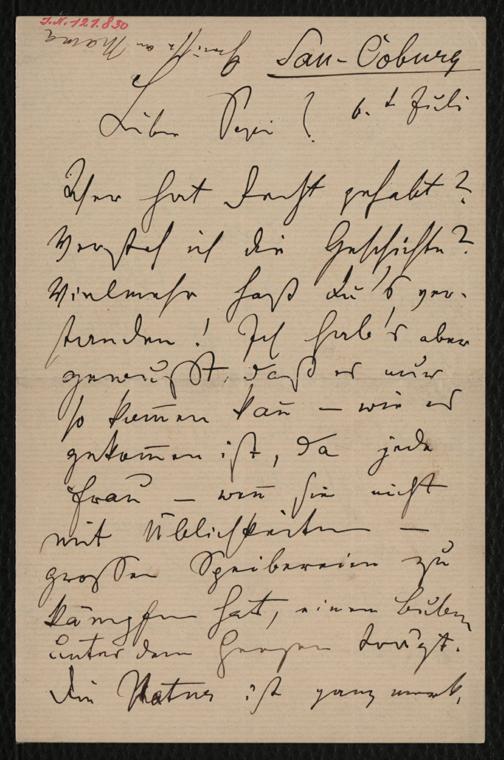 I.N. 121.830
Grüße an Mama
San-Coburg
6. t Juli
Liber Pepi!
Wer hat Recht gehabt?
Versteh ich die Geschichte?
Vielmehr hast du's ver-
standen! Ich hab's aber
gewußt, daß es nur
so kom̄en kan̄ – wie es
gekom̄en ist, da jede
Frau – wen̄ sie nicht
mit Üblichkeiten –
großen Speibereien zu
kämpfen hat, einen Buben
unter dem Herzen trägt.
Die Natur ist ganz merk,